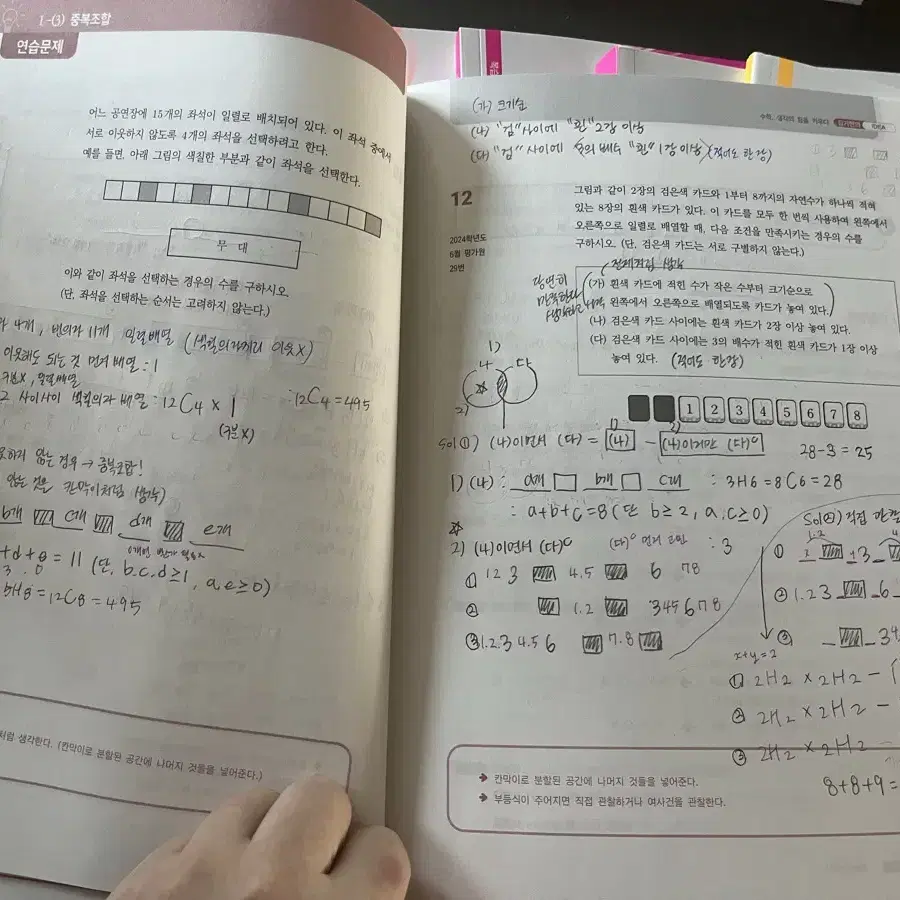 1-(3) 중복조합
연습문제
어느 공연장에 15개의 좌석이 일렬로 배치되어 있다. 이 좌석 중에서
서로 이웃하지 않도록 4개의 좌석을 선택하려고 한다.
예를 들면, 아래 그림의 색칠한 부분과 같이 좌석을 선택한다.
무 대
이와 같이 좌석을 선택하는 경우의 수를 구하시오.
(단, 좌석을 선택하는 순서는 고려하지 않는다.)
4개, 빈의자 11개 일렬배열 (색칠의자끼리 이웃X)
이웃해도 되는 것 먼저 배열 : 1
구분X, 일렬배열
2 사이사이 색칠의자 배열 : 12C4 × 1
(구분X)
∴ 12C4 = 495
하지 않는 경우 → 중복조합!
않는 것을 칸막이처럼 생각)
b개 c개 d개 e개
+d+e = 11 (단, b,c,d≥1, a,e≥0)
3 0
5H8 = 12C8 = 495
처럼 생각한다. (칸막이로 분할된 공간에 나머지 것들을 넣어준다.)
(가) 크기순
(나) "검" 사이에 "흰" 2장 이상
(다) "검" 사이에 3의 배수 "흰" 1장 이상 (적어도 한장)
수학, 생각의 힘을 키우다
12
2024학년도
6월 평가원
29번
그림과 같이 2장의 검은색 카드와 1부터 8까지의 자연수가 하나씩 적혀
있는 8장의 흰색 카드가 있다. 이 카드를 모두 한 번씩 사용하여 왼쪽에서
오른쪽으로 일렬로 배열할 때, 다음 조건을 만족시키는 경우의 수를
구하시오. (단, 검은색 카드는 서로 구별하지 않는다.)
전제처럼 생각
당연히
만족한다
생각하고 시작
(가) 흰색 카드에 적힌 수가 작은 수부터 크기순으로
왼쪽에서 오른쪽으로 배열되도록 카드가 놓여 있다.
(나) 검은색 카드 사이에는 흰색 카드가 2장 이상 놓여 있다.
(다) 검은색 카드 사이에는 3의 배수가 적힌 흰색 카드가 1장 이상
놓여 있다. (적어도 한장)
1)
나 다
2)
1 2 3 4 5 6 7 8
1) 2)
Sol①) (나)이면서 (다) = (나) - (나)이지만 (다)ᶜ
28-3 = 25
1) (나) : a개 b개 c개 : 3H6 = 8C6 = 28
: a+b+c=8 (단 b≥2, a,c≥0)
Sol②) 직접
2) (나)이면서 (다)ᶜ (다)ᶜ 먼저 고려 : 3
① 1 2 3 4.5 6 7 8
② 1.2 3 4 5 6 7 8
③ 1.2.3 4.5 6 7.8
① 1.2 3
② 1.2.3 6
③ 3 4
x+y=2
① 2H2 × 2H2 -
② 2H2 × 2H2 -
③ 2H2 × 2H2 -
8+8+9=
→ 칸막이로 분할된 공간에 나머지 것들을 넣어준다.
→ 부등식이 주어지면 직접 관찰하거나 여사건을 관찰한다.